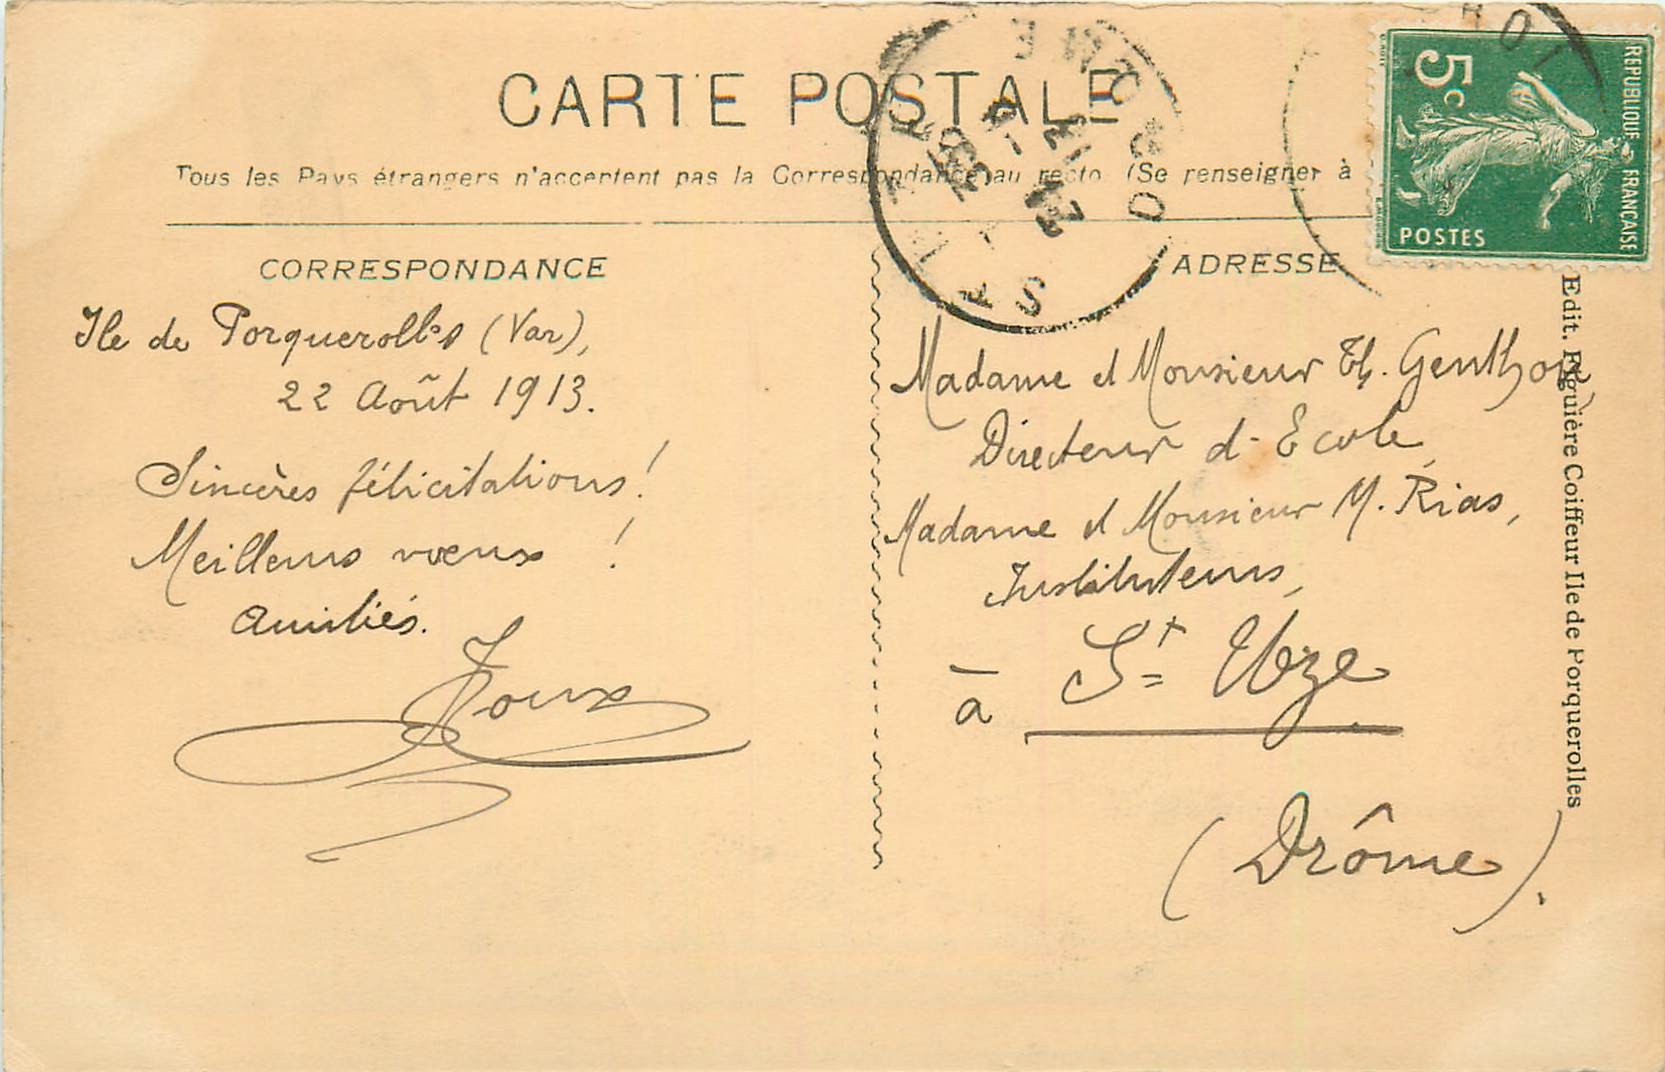 CARTE POSTALE
Tous les Pays étrangers n'acceptent pas la Correspondance au recto (Se renseigner à
CORRESPONDANCE
Ile de Porquerolles (Var),
22 Août 1913.
Sincères félicitations !
Meilleurs vœux !
Amitiés.
Joux
ADRESSE
Madame et Monsieur Th. Genthon
Directeur d'Ecole,
Madame et Monsieur M. Rias,
Instituteurs,
à St Uze
(Drôme).
REPUBLIQUE FRANÇAISE
5c
POSTES
ST UZE
DROME
Edit. Figuière Coiffeur Ile de Porquerolles